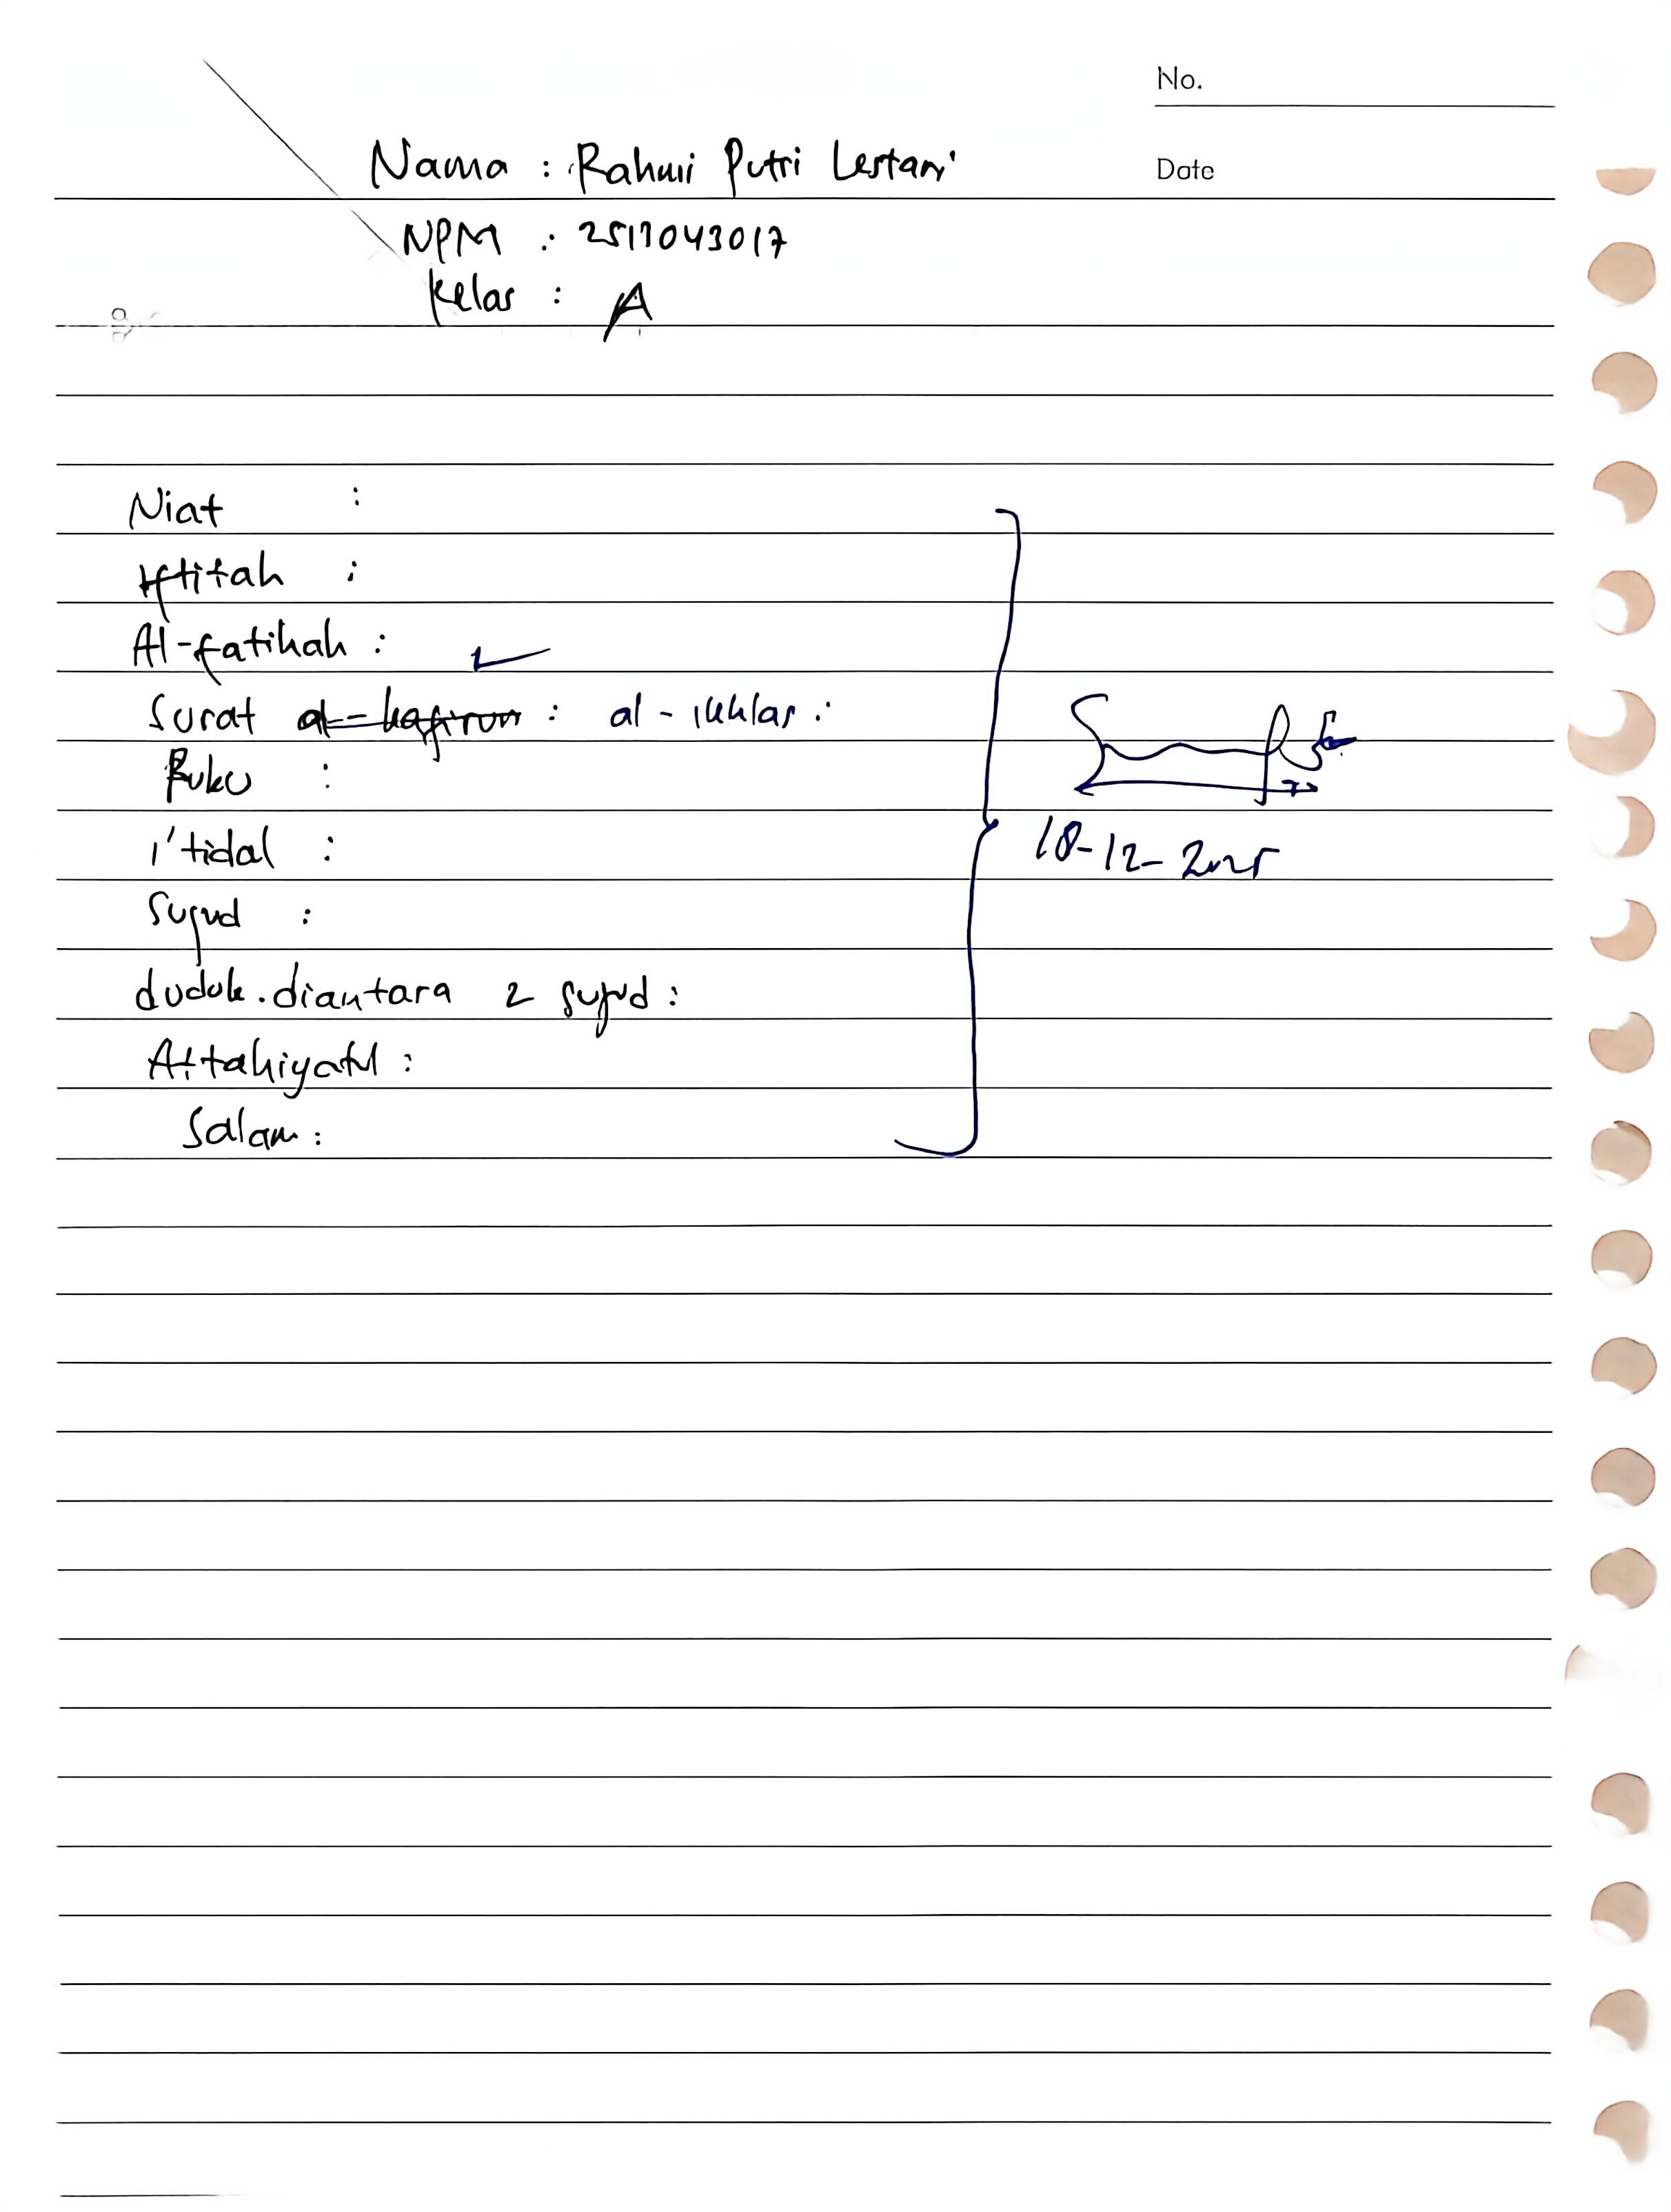 No.
Date
Nama : Rahmi Putri Lestari
NPM : 2517043017
Kelas : A
Niat :
Iftitah :
Al-fatihah : ✓
Surat al-kafirun : al-ikhlas :
Ruku :
i'tidal :
Sujud :
duduk diantara 2 sujud :
Attahiyatul :
Salam :
18-12-2025